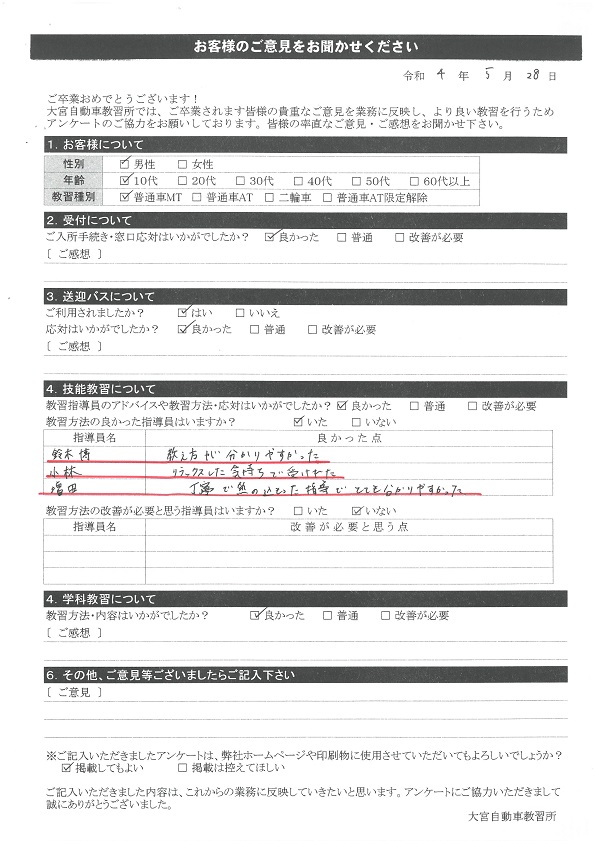 お客様のご意見をお聞かせください
令和 4 年 5 月 28 日
ご卒業おめでとうございます!
大宮自動車教習所では、ご卒業されます皆様の貴重なご意見を業務に反映し、より良い教習を行うため
アンケートのご協力をお願いしております。皆様の率直なご意見・ご感想をお聞かせ下さい。
1. お客様について
性別 ☑男性 □女性
年齢 ☑10代 □20代 □30代 □40代 □50代 □60代以上
教習種別 ☑普通車MT □普通車AT □二輪車 □普通車AT限定解除
2. 受付について
ご入所手続き・窓口応対はいかがでしたか? ☑良かった □普通 □改善が必要
〔 ご感想 〕
3. 送迎バスについて
ご利用されましたか? ☑はい □いいえ
応対はいかがでしたか? ☑良かった □普通 □改善が必要
〔 ご感想 〕
4. 技能教習について
教習指導員のアドバイスや教習方法・応対はいかがでしたか? ☑良かった □普通 □改善が必要
教習方法の良かった指導員はいますか? ☑いた □いない
指導員名 良かった点
鈴木博 教え方が分かりやすかった
小林 リラックスした気持ちで受けれた
増田 丁寧で熱の込もった指導でとても分かりやすかった
教習方法の改善が必要と思う指導員はいますか? □いた ☑いない
指導員名 改善が必要と思う点
4. 学科教習について
教習方法・内容はいかがでしたか? ☑良かった □普通 □改善が必要
〔 ご感想 〕
6. その他、ご意見等ございましたらご記入下さい
〔 ご意見 〕
※ご記入いただきましたアンケートは、弊社ホームページや印刷物に使用させていただいてもよろしいでしょうか?
☑掲載してもよい □掲載は控えてほしい
ご記入いただきました内容は、これからの業務に反映していきたいと思います。アンケートにご協力いただきまして
誠にありがとうございました。
大宮自動車教習所